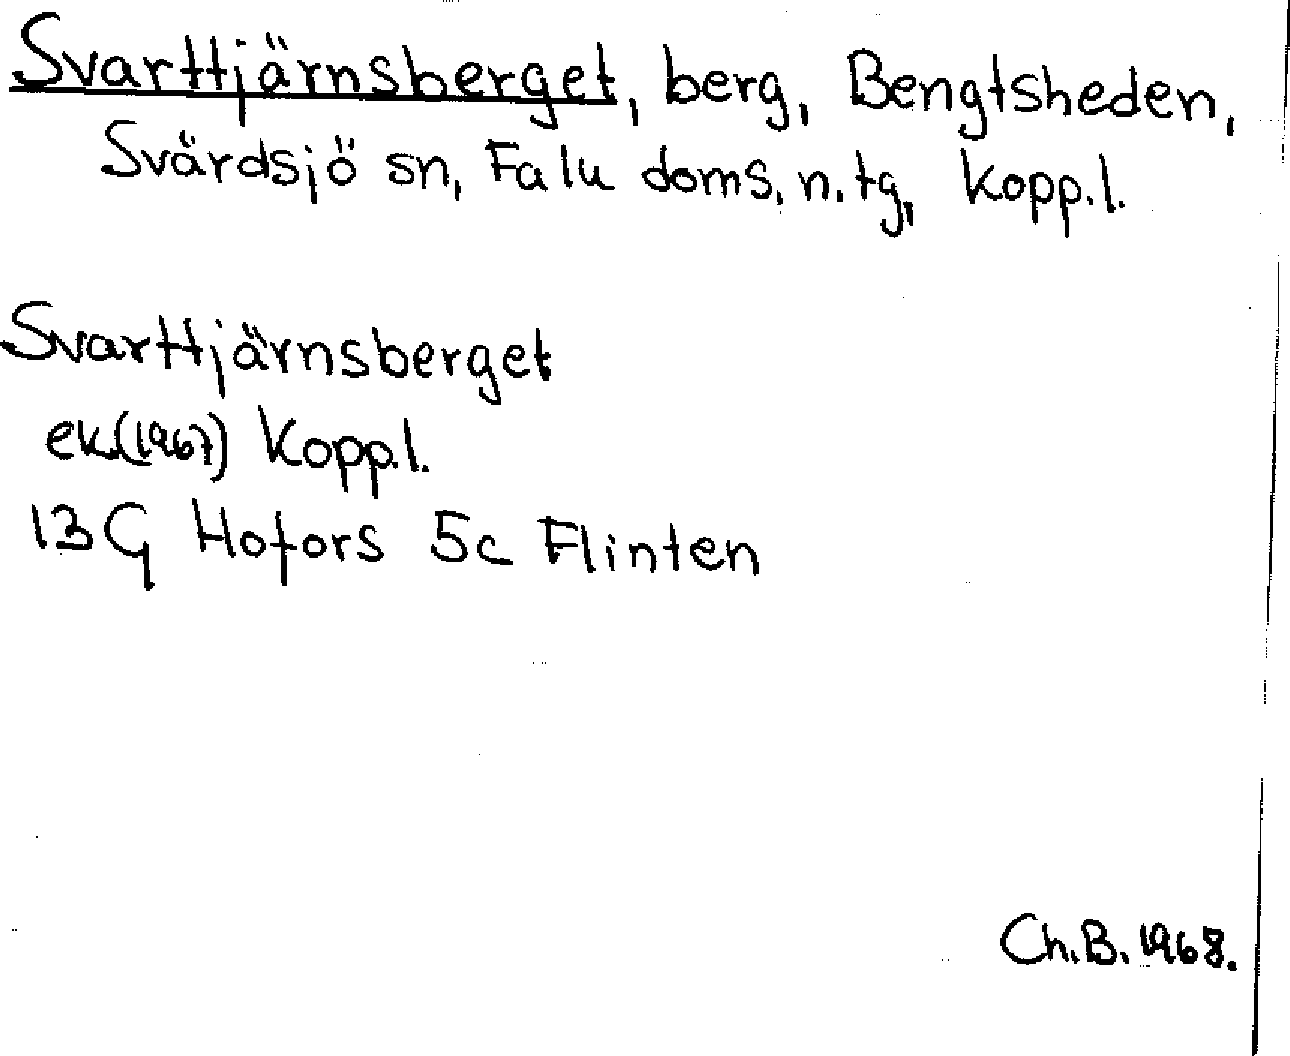 Svarttjärnsberget, berg, Bengtsheden,
Svärdsjö sn, Falu doms. n. tg, Kopp.l.
Svarttjärnsberget
ek.(1967) Kopp.l.
13G Hofors 5c Flinten
Ch.B. 1968.